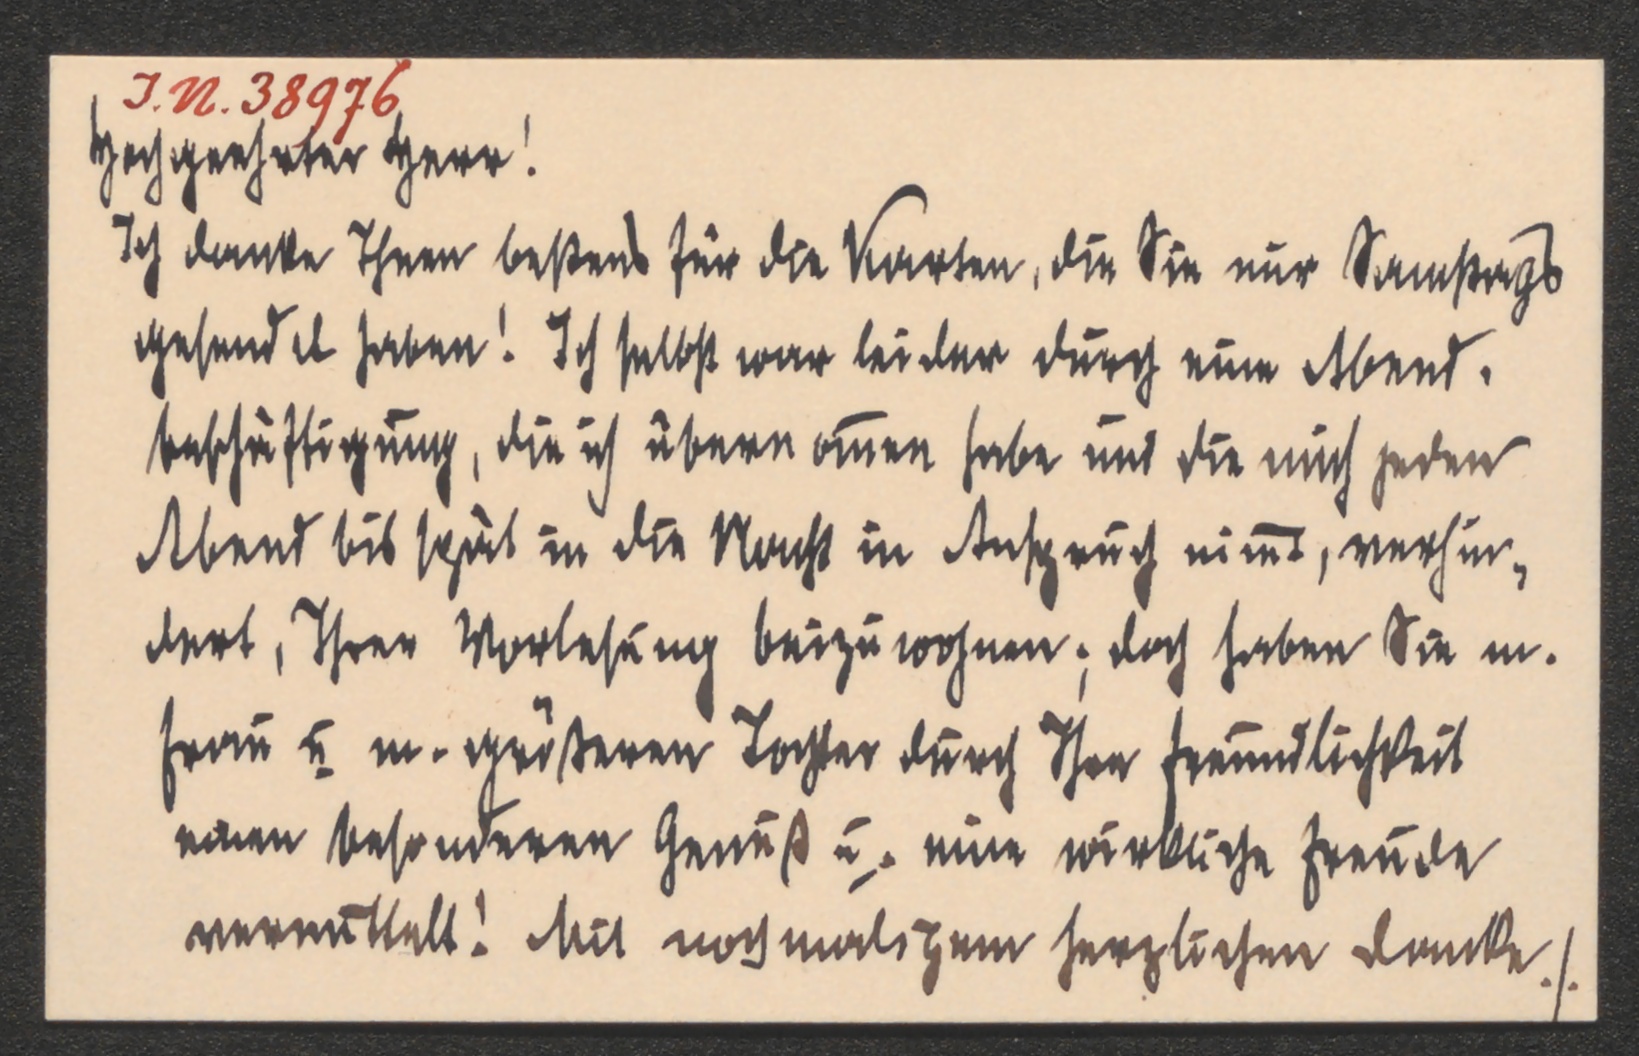 I.N. 38976
Hochgeehrter Herr!
Ich danke Ihnen bestens für die Karten, die Sie mir Samstags
gesendet haben! Ich selbst war leider durch eine Abend-
beschäftigung, die ich übernom̅en habe und die mich jeden
Abend bis spät in die Nacht in Anspruch nim̅t, verhin-
dert, Ihrer Vorlesung beizuwohnen; doch haben Sie m.
Frau u. m. größeren Tochter durch Ihre Freundlichkeit
einen besonderen Genuß u. eine wirkliche Freude
vermittelt! Mit nochmaligem herzlichen Danke ./.